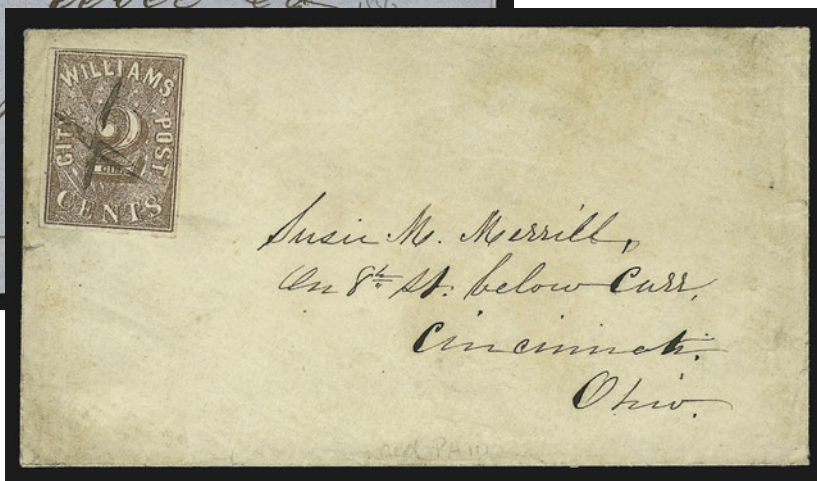 WILLIAMS
CITY 2 POST
CENTS
Susie M. Merrill,
On 8th St. below Carr,
Cincinnati.
Ohio.